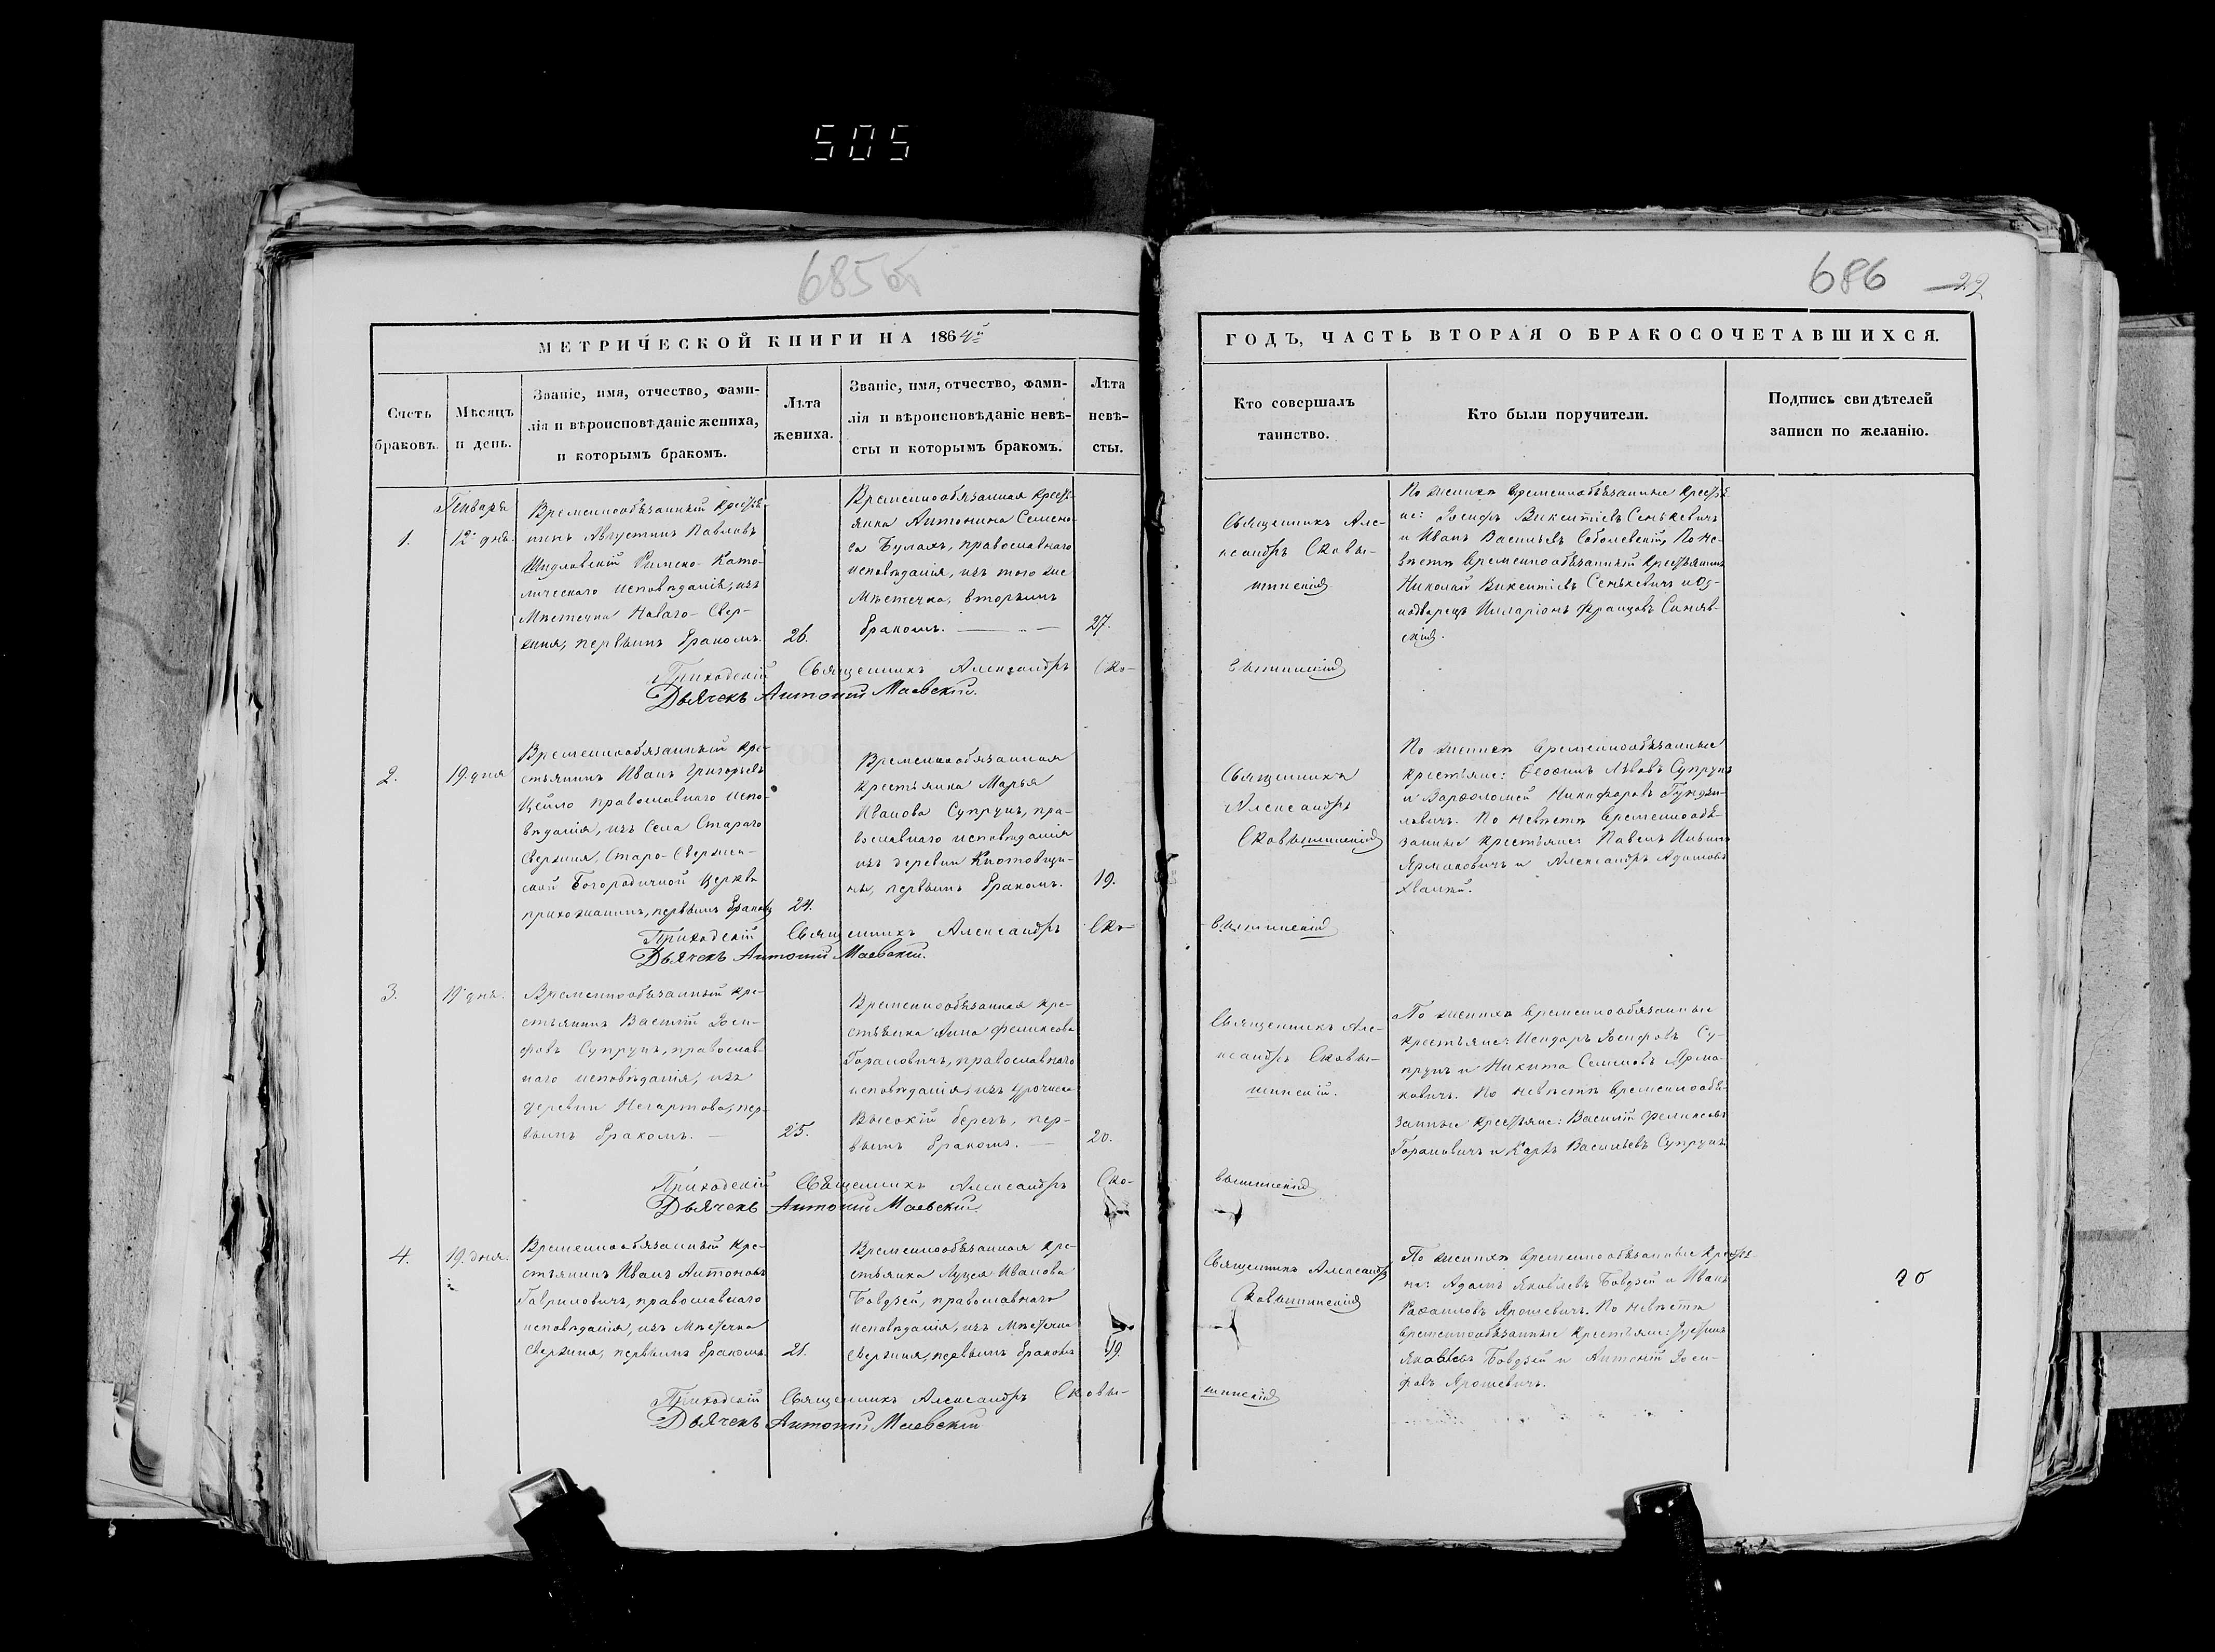 505
685об
686
22
МЕТРИЧЕСКОЙ КНИГИ НА 1864й
ГОДЪ, ЧАСТЬ ВТОРАЯ О БРАКОСОЧЕТАВШИХСЯ.
Счетъ
браковъ.
Мѣсяцъ
и день.
Званіе, имя, отчество, фами-
лія и вѣроисповѣданіе жениха,
и которымъ бракомъ.
Лѣта
жениха.
Званіе, имя, отчество, фами-
лія и вѣроисповѣданіе невѣ-
сты и которымъ бракомъ.
Лѣта
невѣ-
сты.
Кто совершалъ
таинство.
Кто были поручители.
Подпись свидѣтелей
записи по желанію.
1.
Генваря
12 дня.
Временнообязанный кресть-
нинъ Августинъ Павловъ
Шидловскій Римско-Като-
лическаго исповѣданія, изъ
Мѣстечка Новаго-Свер-
жня, первымъ бракомъ.
26.
Временнообязанная кресть-
янка Антонина Семено-
ва Булахъ, православнаго
исповѣданія, изъ того же
Мѣстечка, вторымъ
бракомъ.
27.
Священникъ Але-
ксандръ Сковы-
шинскій
По женихѣ временнообязанные кресть
не: Іосифъ Викентіевъ Сенькевичъ
и Иванъ Васильевъ Соболевскій, По не-
вѣстѣ временнообязанный крестьянинъ
Николай Викентіевъ Сенькевичъ и Од-
нодворецъ Иларіонъ Францовъ Синяв-
скій.
Приходскій Священникъ Александръ Ско-
вышинскій
Дьячекъ Антоній Маевскій.
2.
19. дня
Временнообязанный кре-
стьянинъ Иванъ Григорьевъ
Цейло православнаго испо-
вѣданія, изъ Села Стараго
Свержня, Старо-Свержен-
ской Богородичной Церкви
прихожанинъ, первымъ бракомъ
24.
Временнообязанная
крестьянка Марья
Иванова Супрунъ, пра-
вославнаго исповѣданія
изъ деревни Кнотовщи-
ны, первымъ бракомъ.
19.
Священникъ
Александръ
Сковышинскій
По женихѣ временнообязанные
крестьяне: Ѳеофилъ Львовъ Супрунъ
и Варѳоломей Никифоровъ Гундзи-
левичъ. По невѣстѣ временнообя-
занные крестьяне: Павелъ
Ярмаковичъ и Александръ Адамовъ
Приходскій Священникъ Александръ Ско-
вышинскій
Дьячекъ Антоній Маевскій.
3.
19 дня.
Временнообязанный кре-
стьянинъ Василій Іоси-
фовъ Супрунъ, православ-
наго исповѣданія, изъ
деревни Несартово, пер-
вымъ бракомъ.
25.
Временнообязанная кре-
стьянка Анна Феликсова
Горановичъ, православнаго
исповѣданія, изъ урочища
Высокій берегъ, пер-
вымъ бракомъ.
20.
Священникъ Але-
ксандръ Сковы-
шинскій.
По женихѣ временнообязанные
крестьяне: Исидоръ Іосифовъ Су-
прунъ и Никита Семеновъ Ярма-
ковичъ. По невѣстѣ временнообя-
занные крестьяне: Василій Феликсовъ
Горановичъ и Карпъ Васильевъ Супрунъ
Приходскій Священникъ Александръ Ско-
вышинскій
Дьячекъ Антоній Маевскій.
4.
19. дня.
Временнообязанный кре-
стьянинъ Иванъ Антоновъ
Гавриловичъ, православнаго
исповѣданія, изъ Мѣстечка
Свержня, первымъ бракомъ
21.
Временнообязанная кре-
стьянка Луцея Иванова
Бовдзей, православнаго
исповѣданія, изъ Мѣстечка
Свержня, первымъ бракомъ
19.
Священникъ Александръ
Сковышинскій
По женихѣ временнообязанные крестья
не: Адамъ Яковлевъ Бовдзей и Иванъ
Рафаиловъ Ярошевичъ. По невѣстѣ
временнообязанные крестьяне: Іустинъ
Яковлевъ Бовдзей и Антоній Іоси-
фовъ Ярошевичъ.
Приходскій Священникъ Александръ Сковы-
шинскій
Дьячекъ Антоній Маевскій